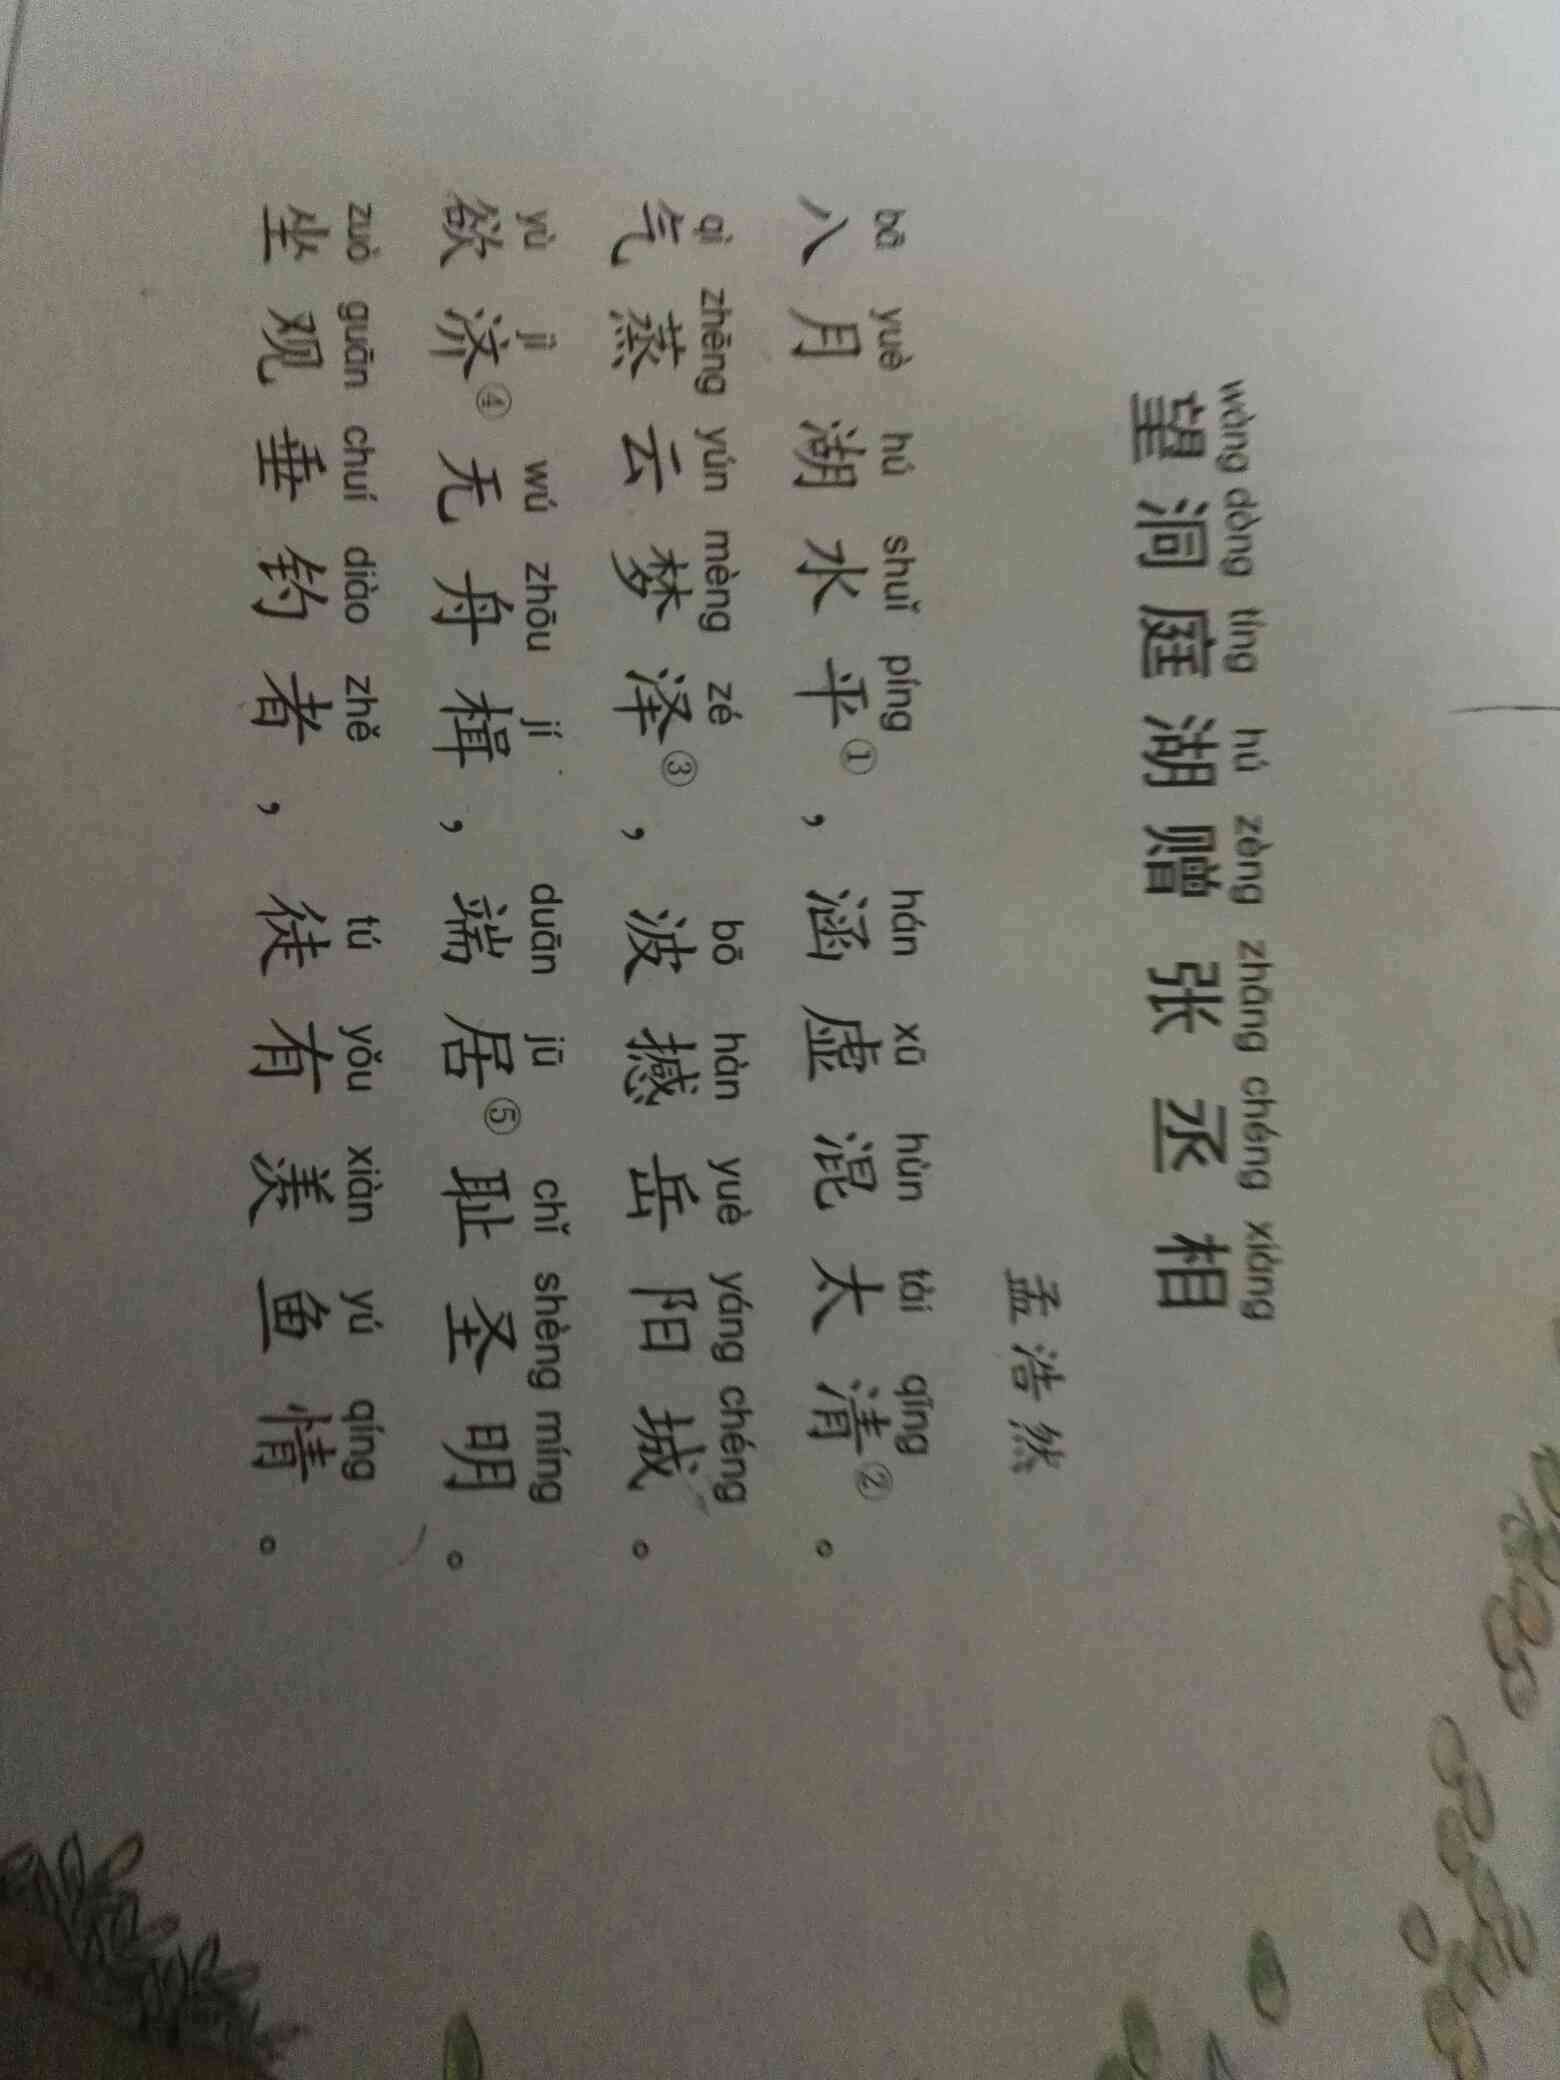 wàng dòng tíng hú zèng zhāng chéng xiàng
望洞庭湖赠张丞相
孟浩然
bā yuè hú shuǐ píng hán xū hùn tài qīng
八月湖水平①，涵虚混太清②。
qì zhēng yún mèng zé bō hàn yuè yáng chéng
气蒸云梦泽③，波撼岳阳城。
yù jì wú zhōu jí duān jū chǐ shèng míng
欲济④无舟楫，端居⑤耻圣明。
zuò guān chuí diào zhě tú yǒu xiàn yú qíng
坐观垂钓者，徒有羡鱼情。